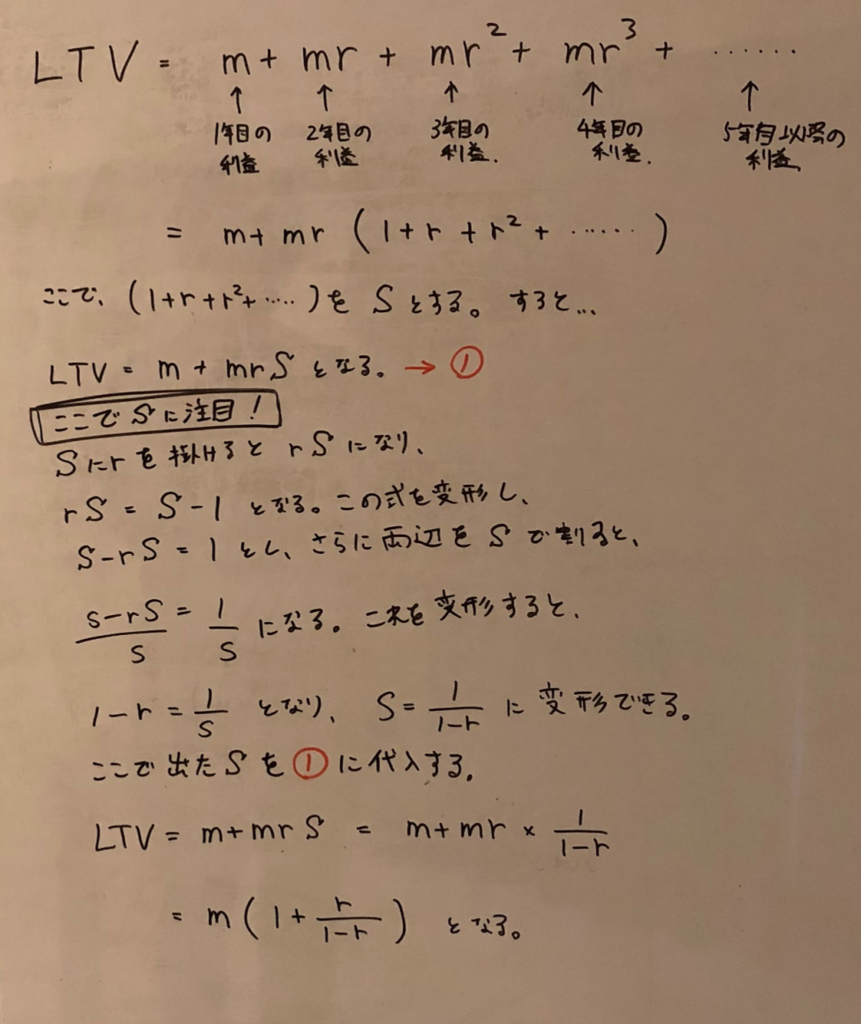 LTV = m + mr + mr² + mr³ + ……
↑ ↑ ↑ ↑ ↑
1年目の 2年目の 3年目の 4年目の 5年目以降の
利益 利益 利益. 利益. 利益
= m + mr (1 + r + r² + ……)
ここで、(1+r+r²+……)を S とする。 すると…
LTV = m + mrS となる。→ ①
ここで S に注目!
S に r を掛けると rS になり、
rS = S - 1 となる。この式を変形し、
S - rS = 1 とし、さらに両辺を S で割ると、
(S-rS)/S = 1/S になる。これを変形すると、
1-r = 1/S となり、 S = 1/(1-r) に変形できる。
ここで出た S を ① に代入する。
LTV = m+mrS = m+mr × 1/(1-r)
= m(1 + r/(1-r)) となる。